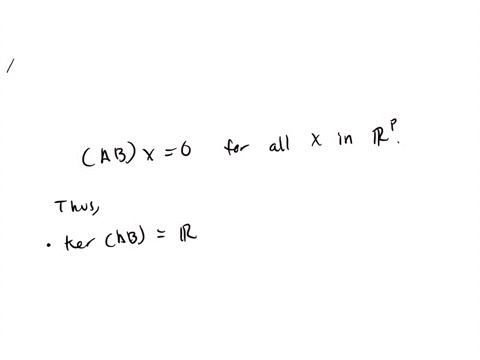 (AB) x = 0 for all x in ℝᵖ.
Thus,
• ker (AB) = ℝ